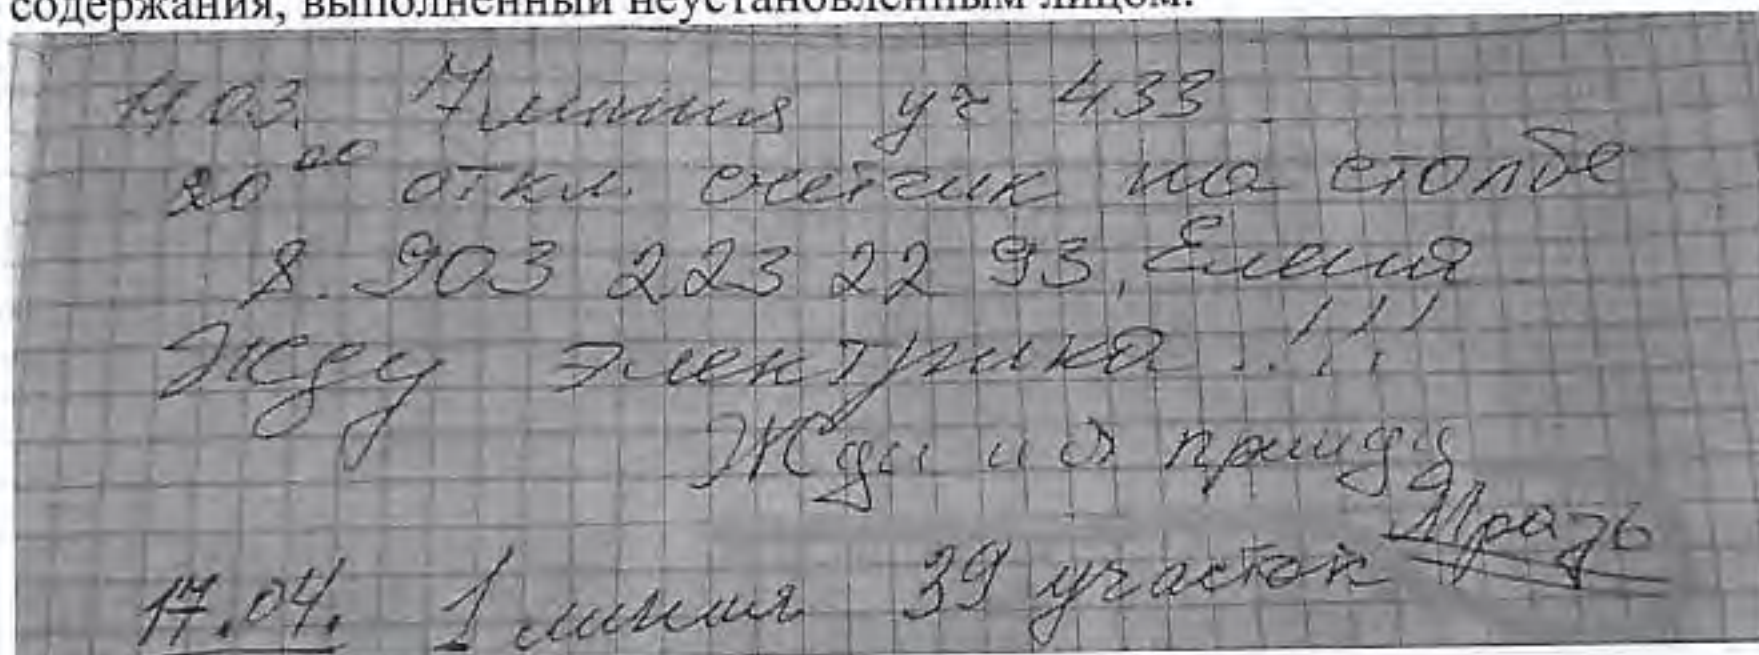 содержания, выполненный неустановленным лицом.
11.03. 7 линия уч. 433
20 00 откл. счетчик на столбе
8. 903 223 22 93, Елена
Жду электрика...!!!
Жди и я приду
Мразь
17.04. 1 линия 39 участок